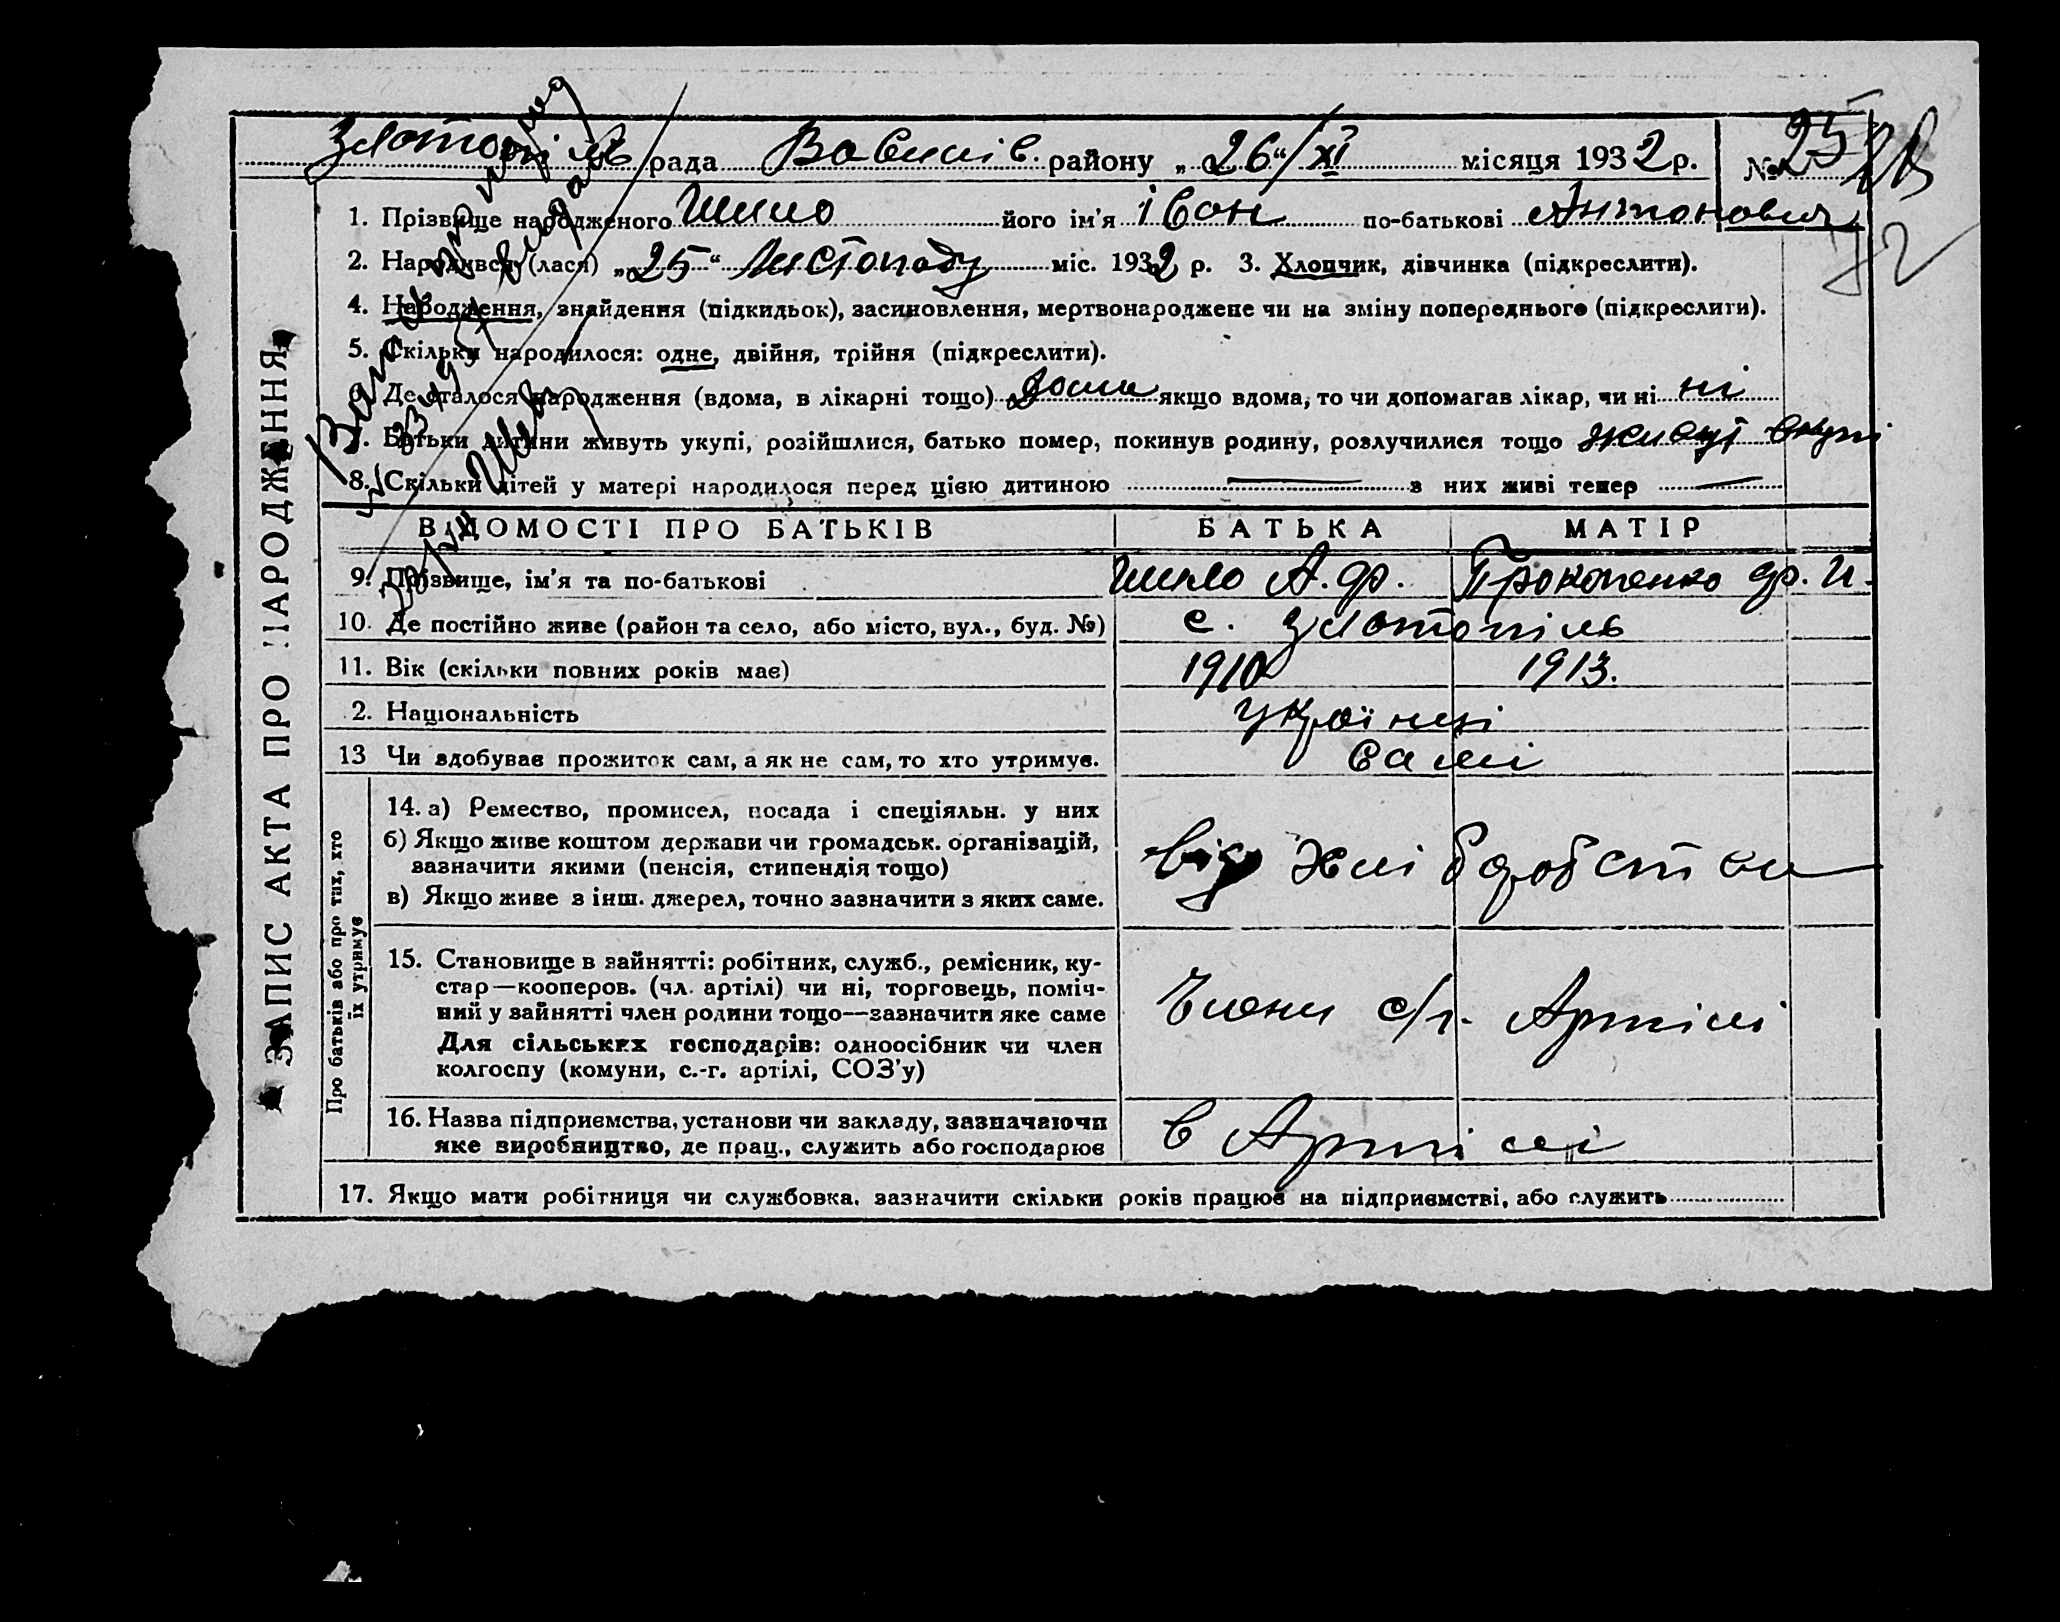 Златопіль рада Вовчків. району „26“/XI місяця 1932 р. № 25
1. Прізвище народженого Шило його ім'я Іван по-батькові Антонович
2. Народився (лася) „25“ Листопаду міс. 1932 р. 3. Хлопчик, дівчинка (підкреслити).
4. Народження, знайдення (підкидьок), засиновлення, мертвонароджене чи на зміну попереднього (підкреслити).
5. Скільки народилося: одне, двійня, трійня (підкреслити).
6. Де сталося народження (вдома, в лікарні тощо) дома якщо вдома, то чи допомагав лікар, чи ні ні
7. Батьки дитини живуть укупі, розійшлися, батько помер, покинув родину, розлучилися тощо живут вкупі
8. Скільки дітей у матері народилося перед цією дитиною — з них живі тепер —
ВІДОМОСТІ ПРО БАТЬКІВ БАТЬКА МАТІР
9. Прізвище, ім'я та по-батькові Шило А. Ф. Прокопенко Ф. И.
10. Де постійно живе (район та село, або місто, вул., буд. №) с. Златопіль
11. Вік (скільки повних років має) 1910 1913.
2. Національність Українці
13 Чи здобуває прожиток сам, а як не сам, то хто утримує. Самі
14. а) Ремество, промисел, посада і спеціяльн. у них
б) Якщо живе коштом держави чи громадськ. організацій,
зазначити якими (пенсія, стипендія тощо)
в) Якщо живе з інш. джерел, точно зазначити з яких саме.
від хлібробства
15. Становище в зайнятті: робітник, служб., ремісник, ку-
стар—кооперов. (чл. артілі) чи ні, торговець, поміч-
ний у зайнятті член родини тощо—зазначити яке саме
Для сільських господарів: одноосібник чи член
колгоспу (комуни, с.-г. артілі, СОЗ'у)
Члени с/г. Артілі
16. Назва підприємства, установи чи закладу, зазначаючи
яке виробництво, де прац., служить або господарює
в Артілі
17. Якщо мати робітниця чи службовка, зазначити скільки років працює на підприємстві, або служить
ЗАПИС АКТА ПРО НАРОДЖЕННЯ
Про батьків або про тих, хто
їх утримує